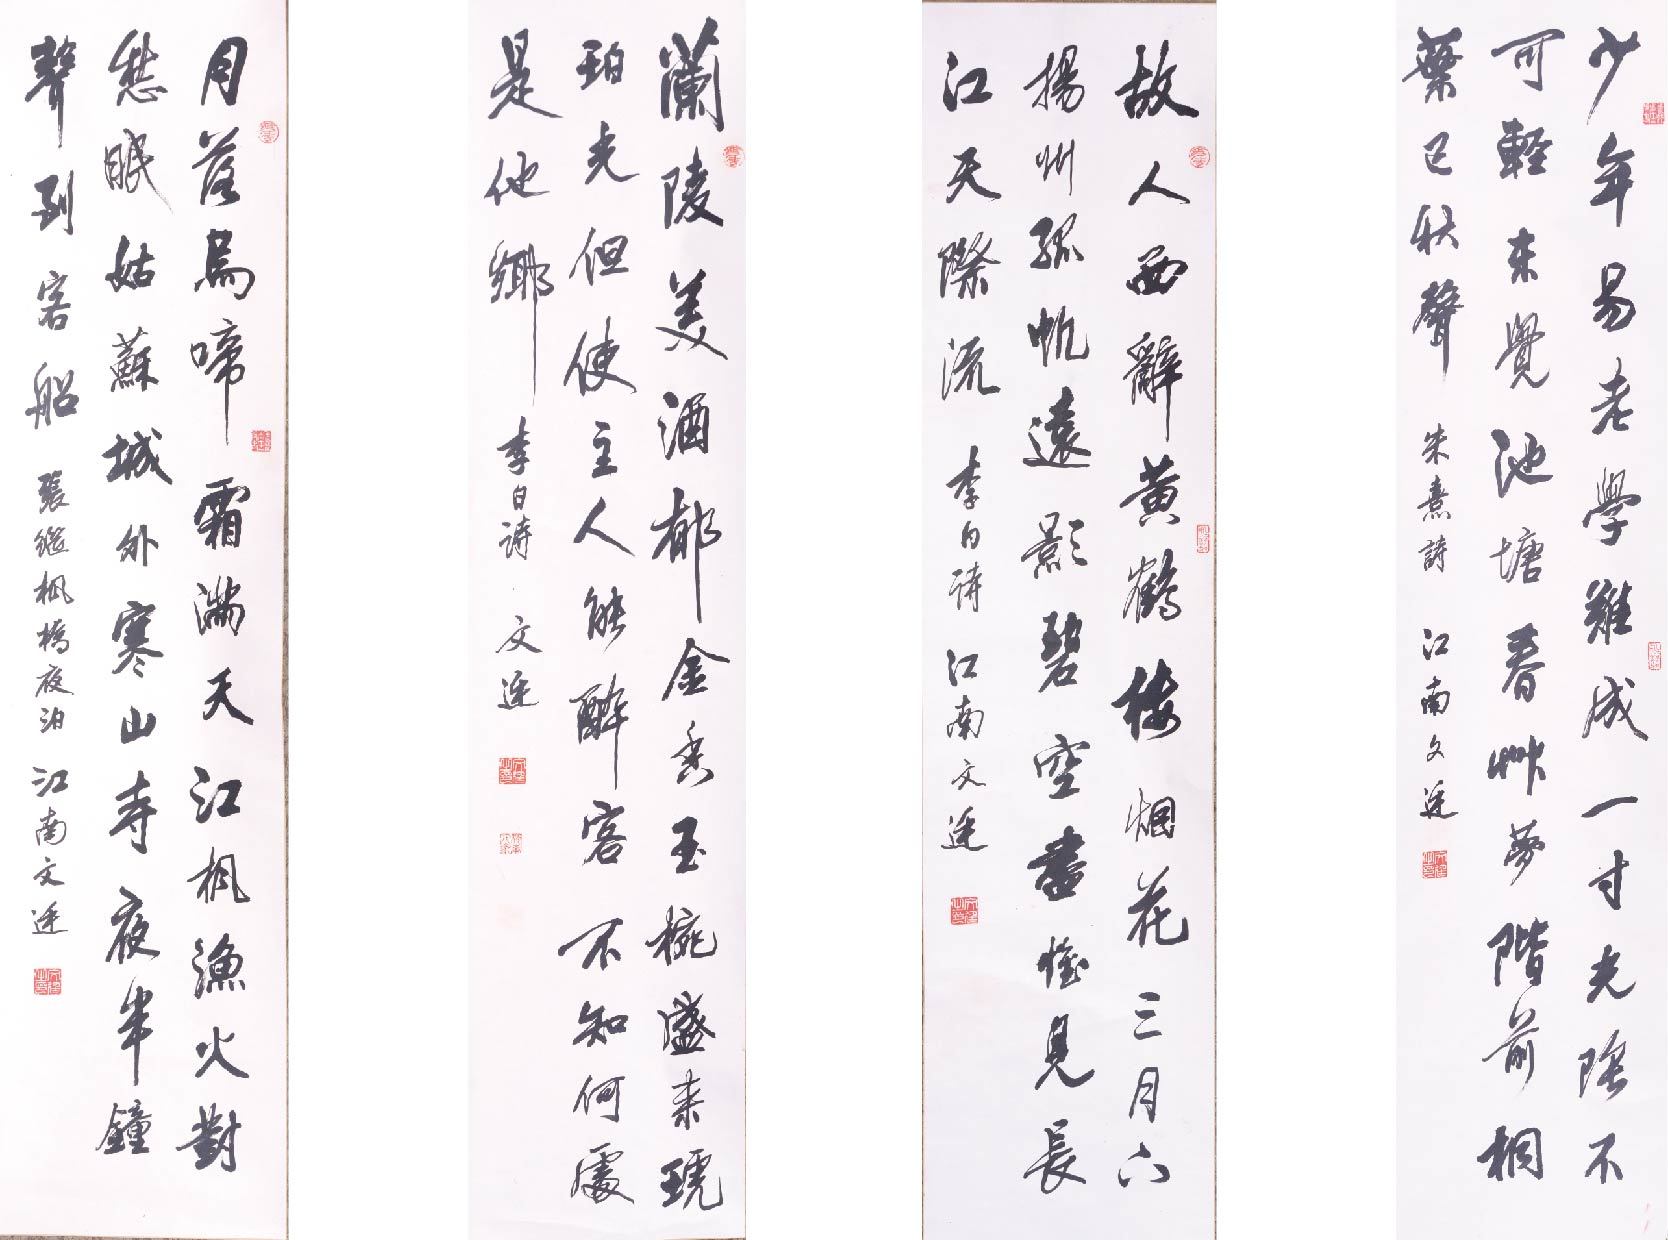 少年易老學難成一寸光陰不
可輕未覺池塘春艸夢階前桐
葉已秋聲 朱熹詩 江南文
故人西辭黄鶴樓烟花三月下
揚州孤帆遠影碧空盡惟見長
江天際流 李白詩 江南文
蘭陵美酒郁金香玉椀盛来琥
珀光但使主人能醉客不知何處
是他鄉 李白詩 文
月落烏啼霜滿天江楓漁火對
愁眠姑蘇城外寒山寺夜半鐘
聲到客船 張繼楓橋夜泊 江南文